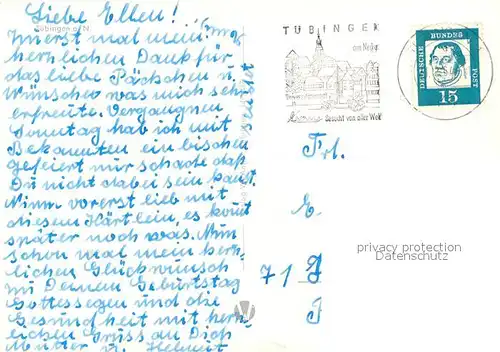 Liebe Ellen!
Tübingen a. N.
Zuerst mal mein
herzlichen Dank für
das liebe Päckchen u.
Wünschen was mich sehr
erfreute. Vergangnen
Sonntag hab ich mit
Bekannten ein bischen
gefeiert nur schade daß
Du nicht dabei sein kanst.
Nimm vorerst lieb mit
diesem Kärtlein, es komt
später noch was. Nun
schon mal mein herz-
lichen Glückwunsch
zu Deinem Geburtstag
Gottessegen und die
Gesundheit mit herz-
lichen Gruss an Dich
Mutter u. Helmut
TÜBINGEN
am Neckar
Besucht von aller Welt
DEUTSCHE BUNDES POST
15
Frl.
E
71
privacy protection
Datenschutz